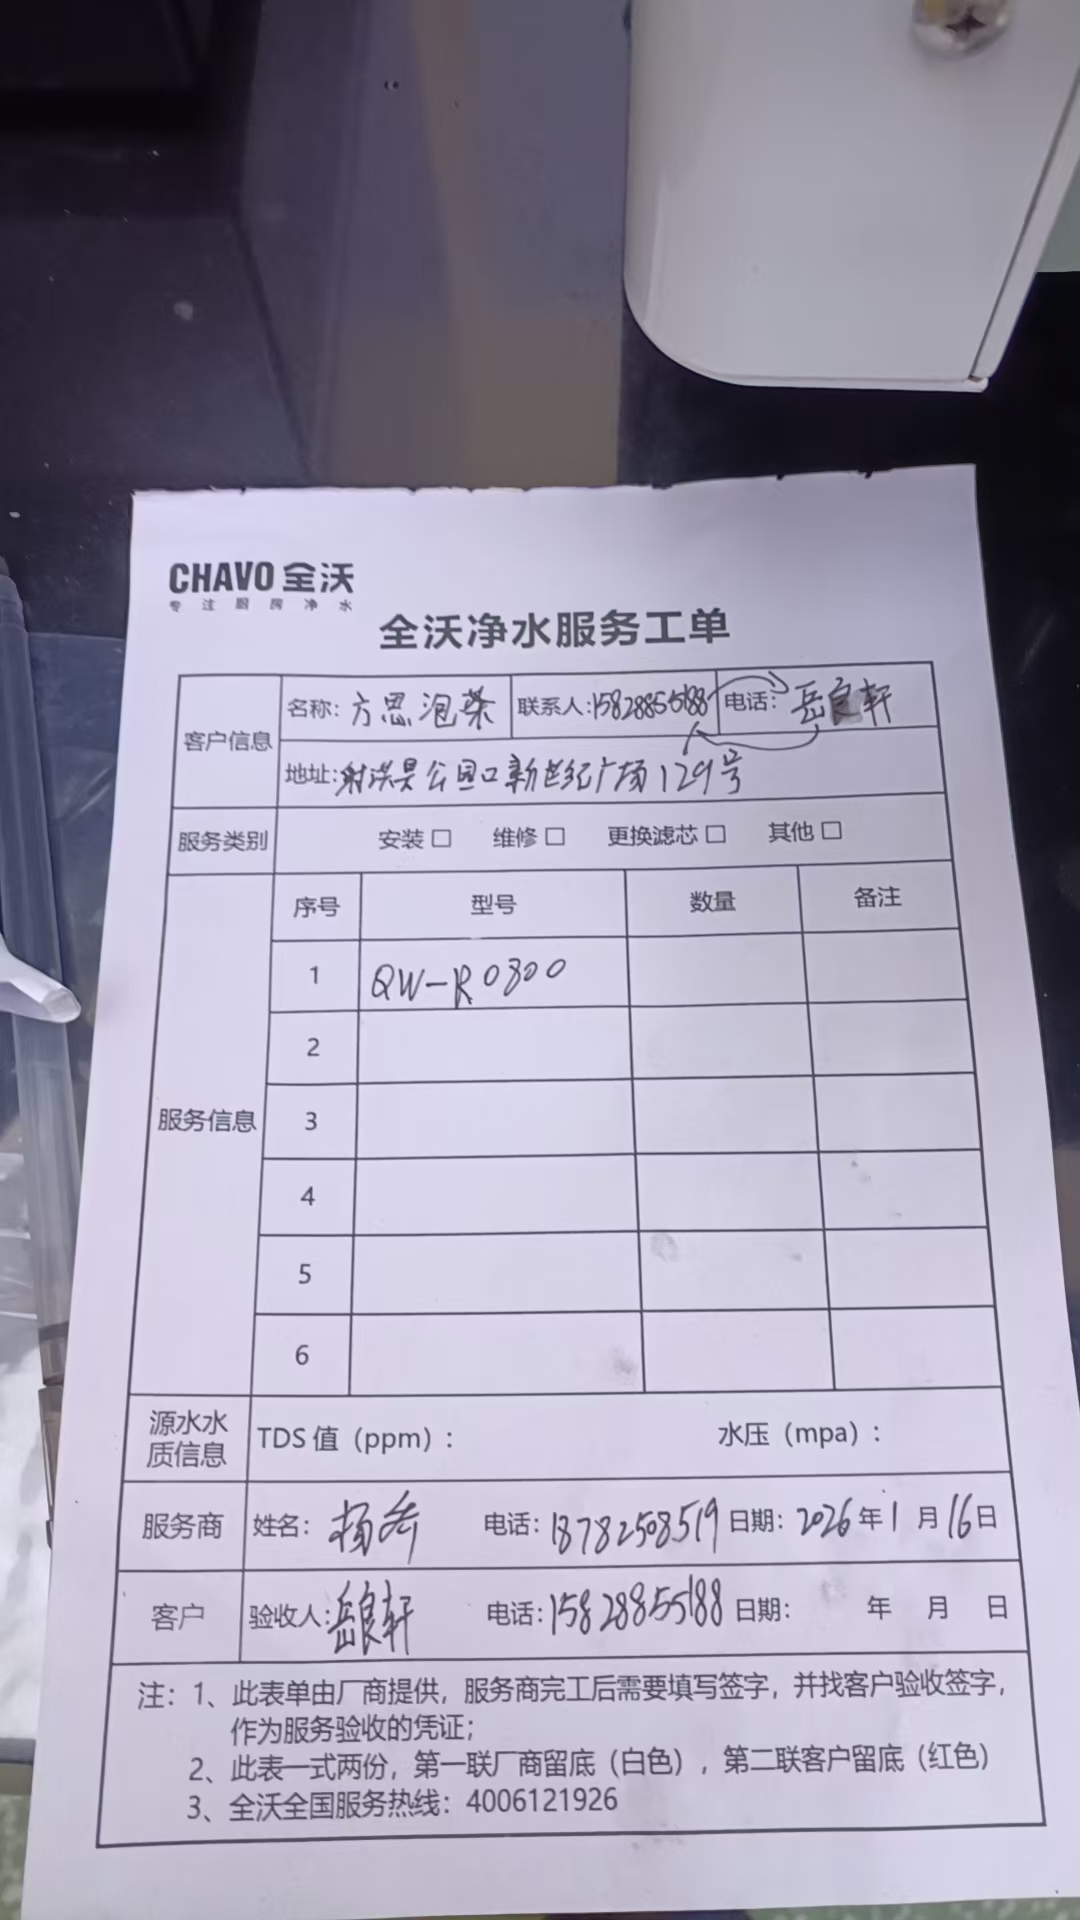 CHAVO 全沃
专注厨房净水
全沃净水服务工单
客户信息
名称: 方恩泡菜 联系人: 15828855188 电话: 岳良轩
地址: 射洪县公园口新世纪广场129号
服务类别 安装□ 维修□ 更换滤芯□ 其他□
服务信息
序号 型号 数量 备注
1 QW-RO800
2
3
4
5
6
源水水质信息 TDS 值（ppm）: 水压（mpa）:
服务商 姓名: 杨 电话: 18782508519 日期: 2026年1月16日
客户 验收人: 岳良轩 电话: 15828855188 日期: 年 月 日
注: 1、此表单由厂商提供，服务商完工后需要填写签字，并找客户验收签字，
作为服务验收的凭证;
2、此表一式两份，第一联厂商留底（白色），第二联客户留底（红色）
3、全沃全国服务热线: 4006121926